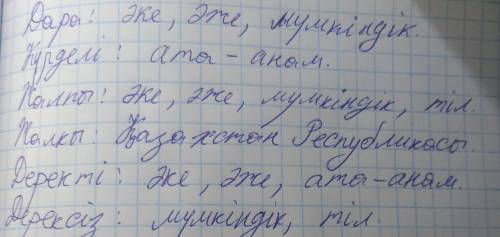 Дара: әке, әже, мумкіндік.
Күрделі: ата-анам.
Жалпы: әке, әже, мумкіндік, тіл.
Жалқы: Қазақстан Республикасы.
Деректі: әке, әже, ата-анам.
Дерексіз: мумкіндік, тіл.